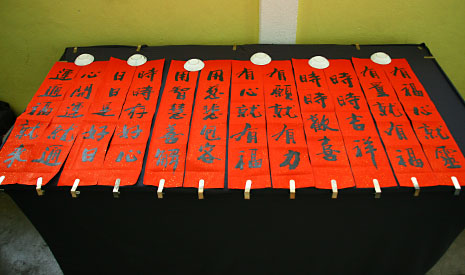 有福心就靈
有量就有福
時時吉祥
時時歡喜
有願就有力
有心就有福
用慈悲
用智慧善解
時時存好心
日日是好日
心開運就通
運通福就來